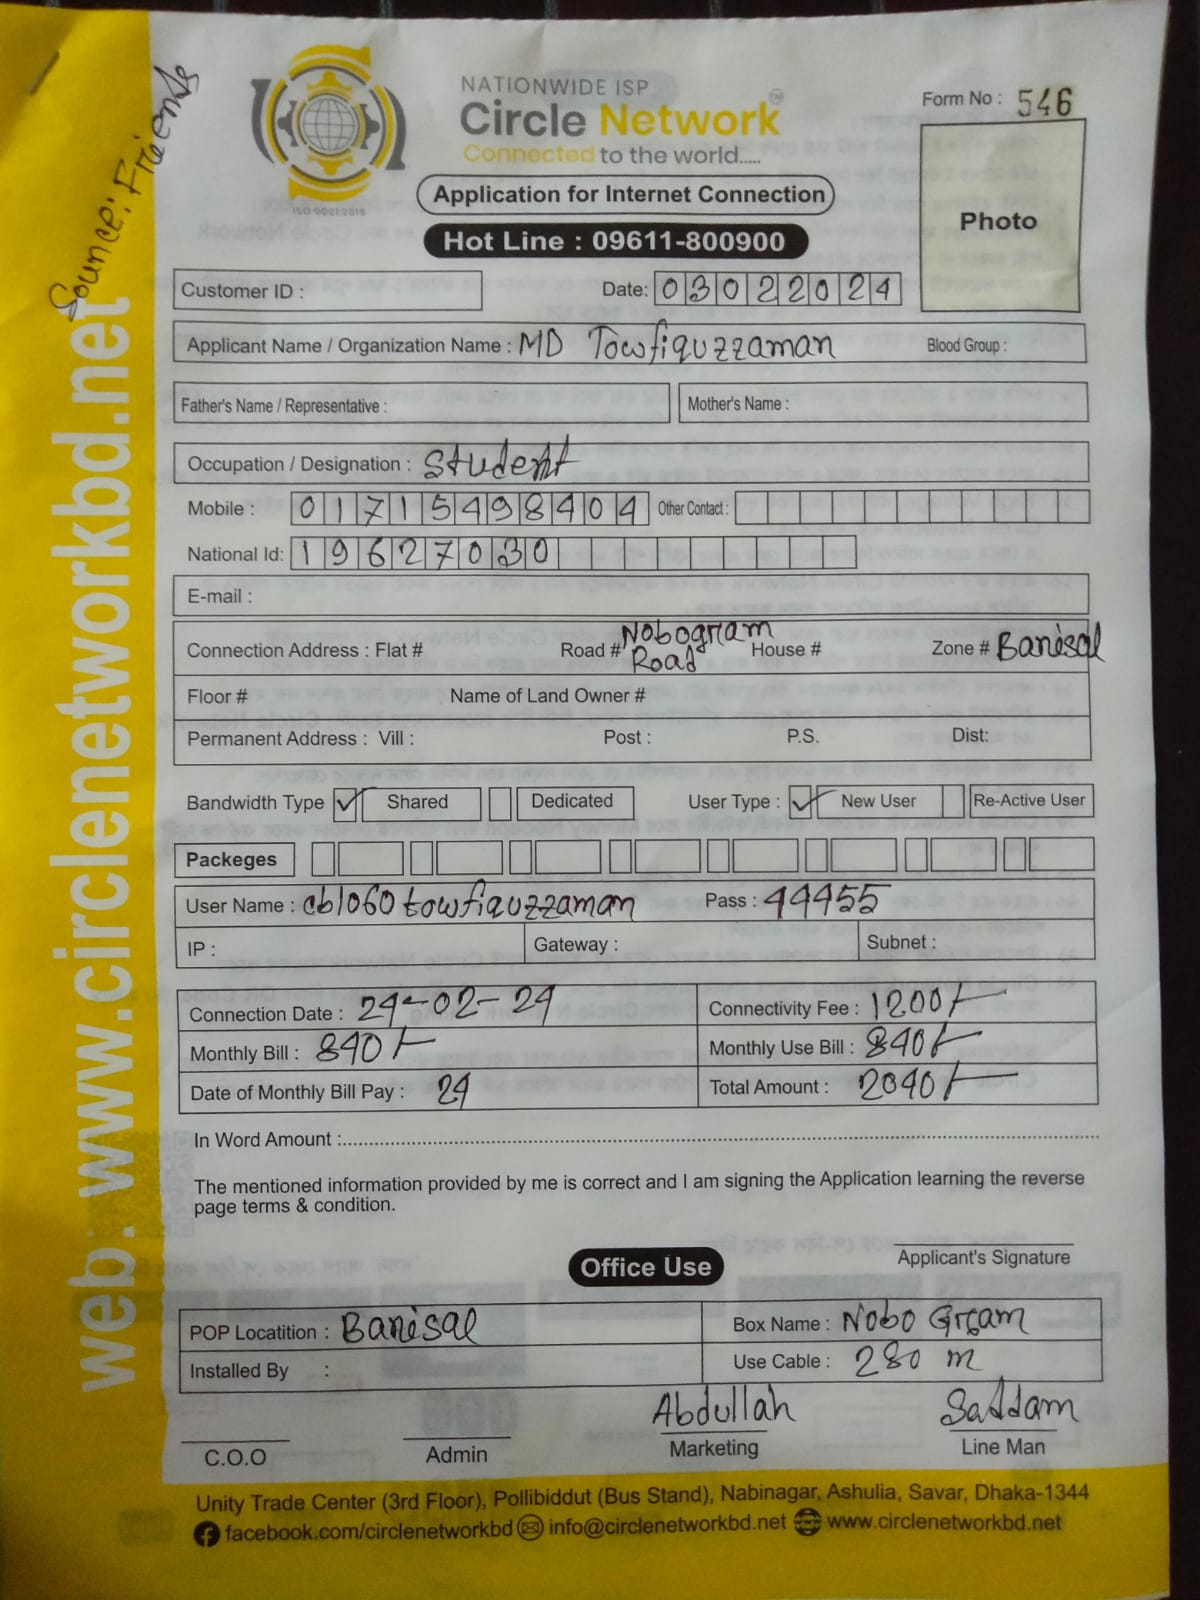 Source: Friends
web: www.circlenetworkbd.net
ISO 9001:2015
NATIONWIDE ISP
Circle Network™
Connected to the world.....
Application for Internet Connection
Hot Line : 09611-800900
Form No : 546
Photo
Customer ID :
Date: 03022024
Applicant Name / Organization Name : MD Towfiquzzaman Blood Group :
Father's Name / Representative : Mother's Name :
Occupation / Designation : Student
Mobile : 01715498404 Other Contact :
National Id: 19627030
E-mail :
Connection Address : Flat # Road # Nobogram Road House # Zone # Barisal
Floor # Name of Land Owner #
Permanent Address : Vill : Post : P.S. Dist:
Bandwidth Type Shared Dedicated User Type : New User Re-Active User
Packeges
User Name : cb1060towfiquzzaman Pass : 44455
IP : Gateway : Subnet :
Connection Date : 24-02-24 Connectivity Fee : 1200/-
Monthly Bill : 840/- Monthly Use Bill : 840/-
Date of Monthly Bill Pay : 24 Total Amount : 2040/-
In Word Amount :
The mentioned information provided by me is correct and I am signing the Application learning the reverse
page terms & condition.
Applicant's Signature
Office Use
POP Locatition : Barisal Box Name : Nobo Gram
Installed By : Use Cable : 280 m
Abdullah Saddam
C.O.O Admin Marketing Line Man
Unity Trade Center (3rd Floor), Pollibiddut (Bus Stand), Nabinagar, Ashulia, Savar, Dhaka-1344
facebook.com/circlenetworkbd info@circlenetworkbd.net www.circlenetworkbd.net